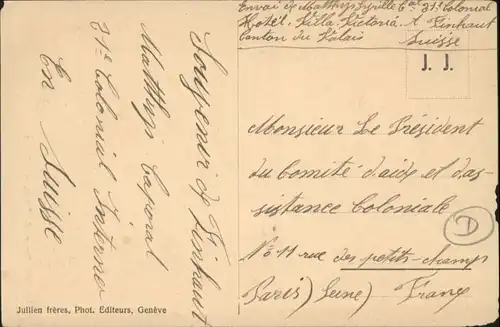 Envoi de Matthys Cyrille Cal 31e Colonial
Hotel Villa Victoria A Finhaut
Canton du Valais Suisse
J. J.
Souvenir de Finhaut
Matthys Caporal
31e Colonial Interné
En Suisse
Monsieur Le Président
du Comité d'aide et d'as-
sistance Coloniale
No 11 rue des petits-champs
Paris) (Seine) France
D
Jullien frères, Phot. Editeurs, Genève